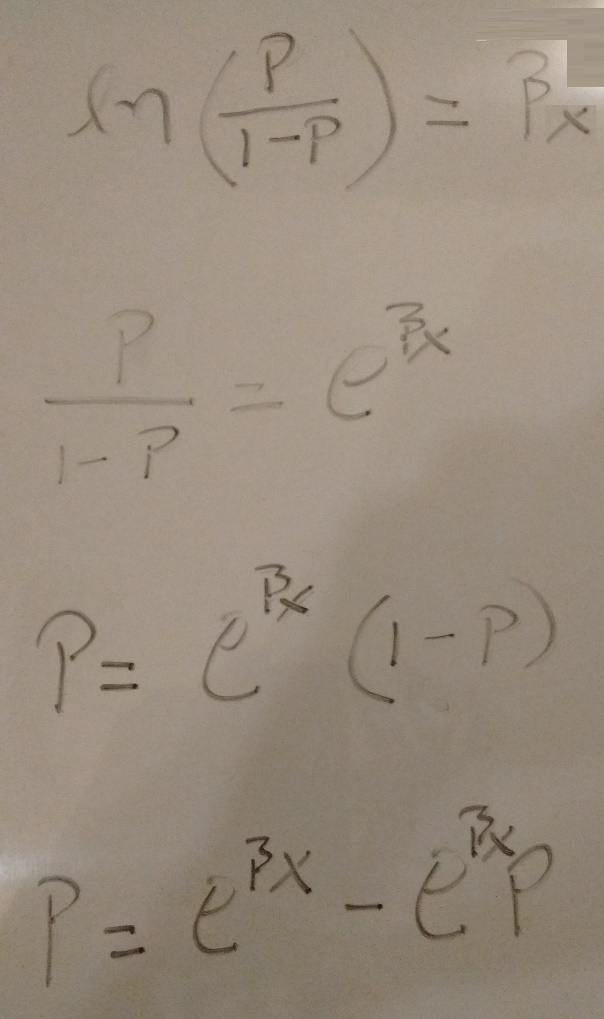 ln(P/(1-P)) = βx
P/(1-P) = e^βx
P = e^βx (1-P)
P = e^βx - e^βx P